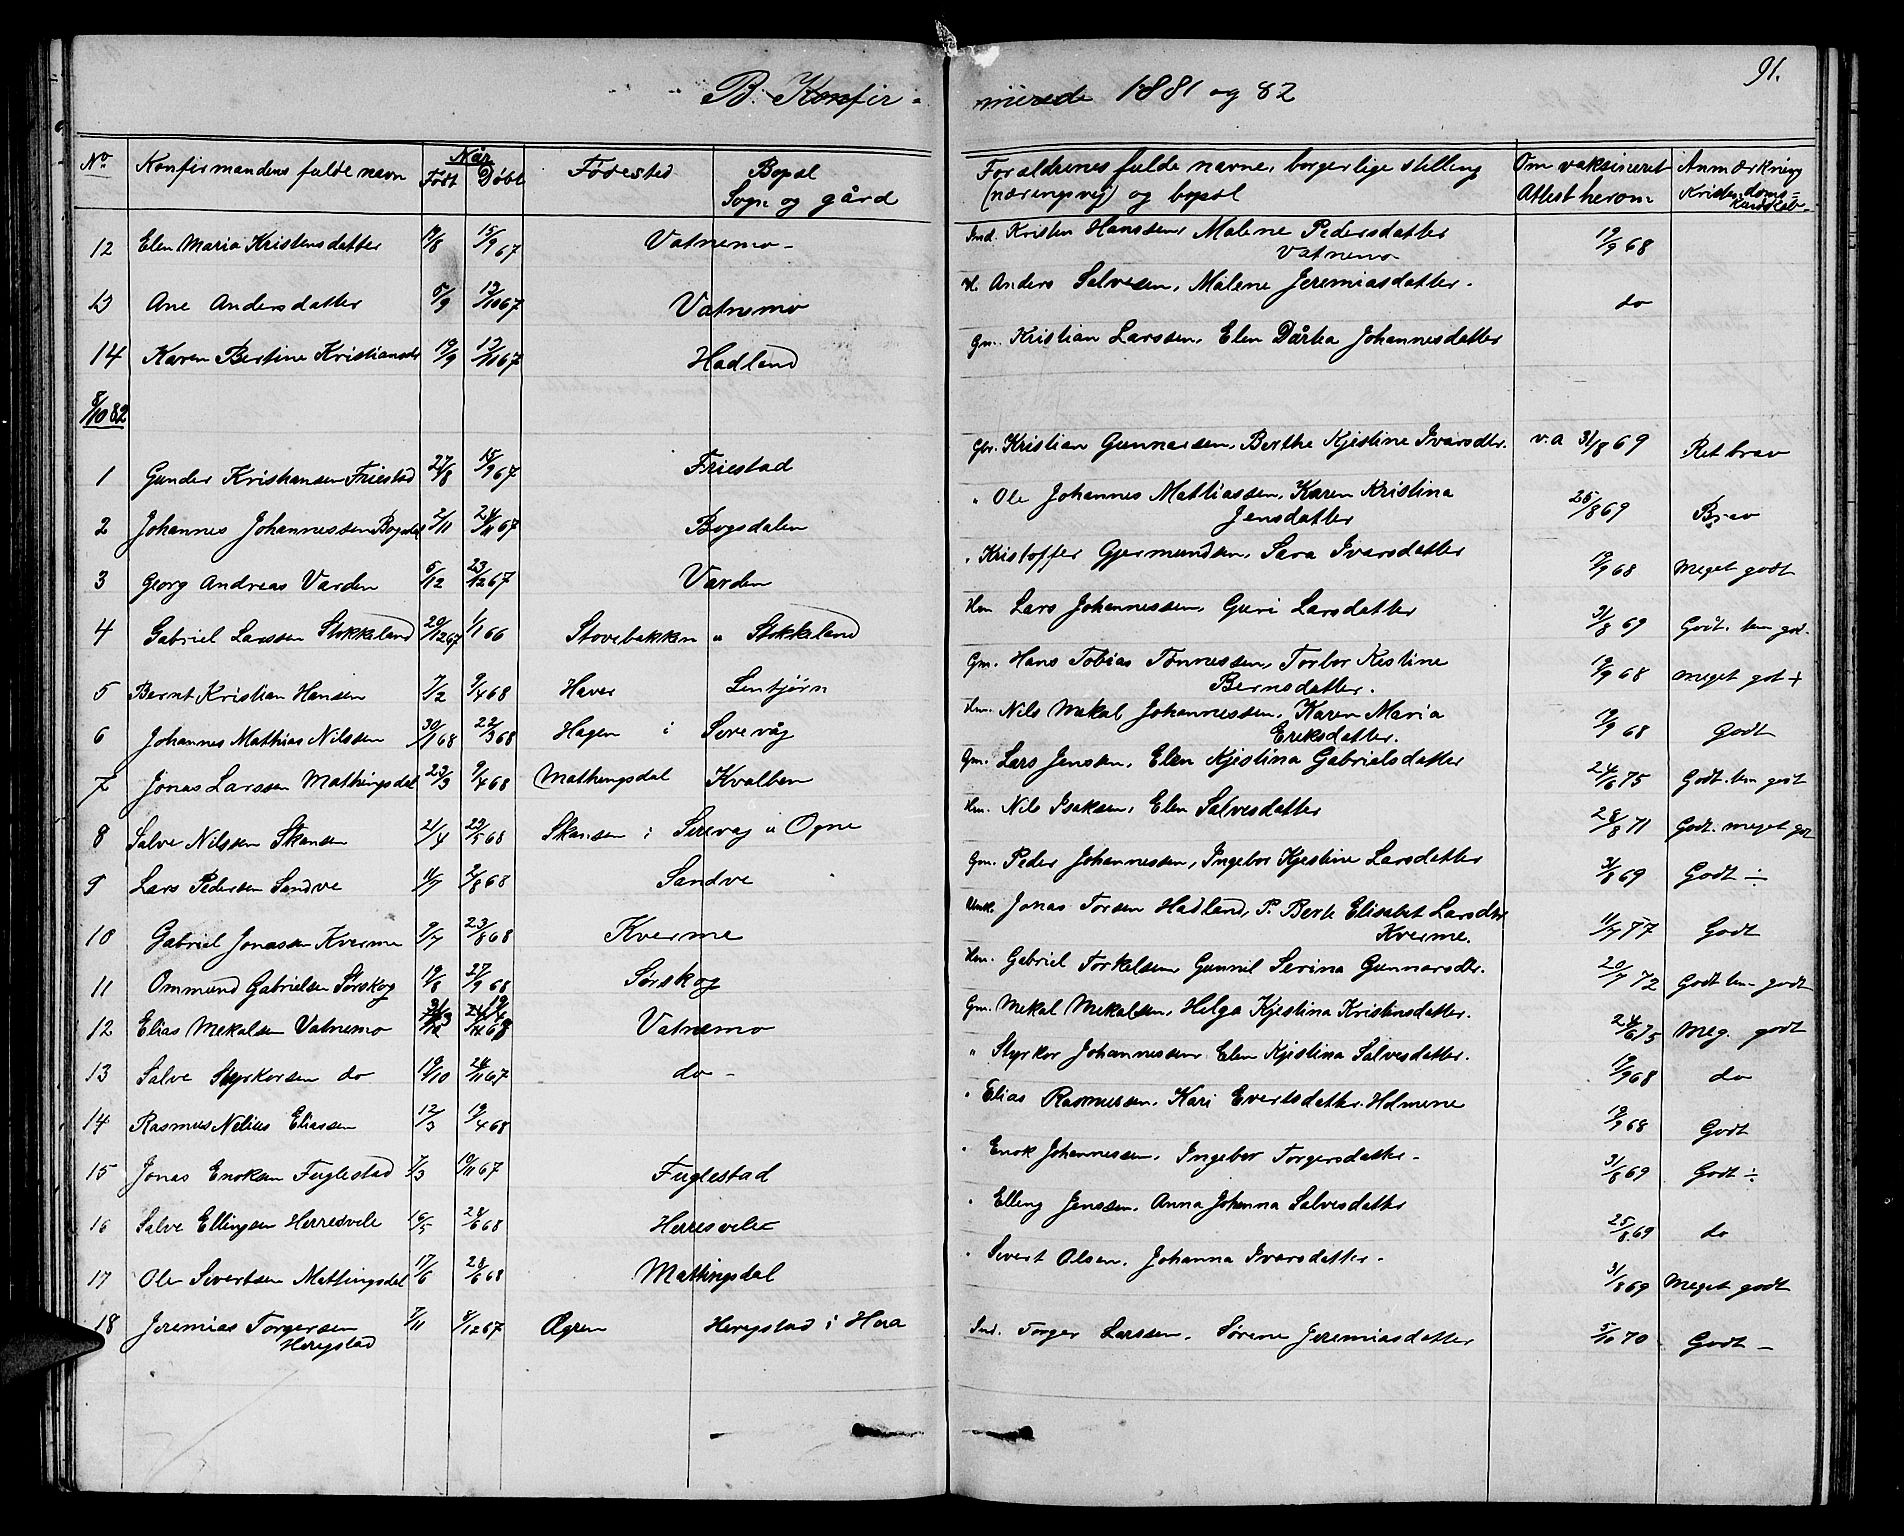 91.
B. Konfir- mirede 1881 og 82
No Konfirmandens fulde navn Når Født Døbt Fødested Bopæl Sogn og gård Forældrenes fulde navne, borgerlige stilling (næringsvej) og bopæl Om vaksineret Attest herom Anmærkning Kristendoms= kundskab-
12 Elen Maria Kristensdatter 15/9 67 Vatnemo - Ind. Kristen Hanssen, Malene Pedersdatter Vatnemo 19/9 68
13 Ane Andersdatter 5/9 13/10 67 Vatnemo Anders Salvesen, Malene Jeremiasdatter. do
14 Karen Bertine Kristiansdtr 19/9 Hadland Gm. Kristian Larssen, Elen Dårtea Johannesdatter
8/10 82
1 Gunder Kristiansen Friestad 27/8 15/9 67 Friestad Gbr. Kristian Gunnarsen, Berthe Kjestine Ivarsdtr. v.a 31/8 69 Ret brav
2 Johannes Johannessen Bogsdal 2/11 24/11 67 Bogsdalen " Ole Johannes Mattiassen, Karen Kristina Jensdatter 25/8 69 Brav
3 Georg Andreas Varden 5/12 23/12 67 Varden " Kristoffer Gjermundsen, Sara Ivarsdatter 19/9 68 Meget godt
4 Gabriel Larssen Stokkeland 20/12 67 1/1 66 Stovebakken " Stokkeland Hm Lars Johannessen, Guri Larsdatter 31/8 69 Godt. tem god.
5 Bernt Kristian Hansen 7/2 9/4 68 Haver Lentjørn Gm. Hans Tobias Tønnessen, Torbor Kestine Bernsdatter. 19/9 68 meget got +
6 Johannes Mathias Nilssen 30/1 68 22/3 68 Hagen i Sirevåg Hm. Nils Mekal Johannessen, Karen Maria Eriksdatter. 19/9 68 Godt
7 Jonas Larssen Mathingsdal 23/3 9/4 68 Mathingsdal Kvalben Gm. Lars Jenssen, Elen Kjestina Gabrielsdatter 24/6 75 Godt. tem godt
8 Salve Nilssen Skansen 21/4 29/5 68 Skansen i Sirevag i Ogne Hm. Nils Isaksen, Elen Salvesdatter 28/8 71 Godt. meget got
9 Lars Pedersen Sandve 11/7 2/8 68 Sandve Gm. Peder Johannessen, Ingebor Kjestine Larsdatter 31/8 69 Godt ÷
10 Gabriel Jonassen Kverme 9/7 23/8 68 Kverme Unk. Jonas Torsen Hadland, P. Berte Elisabet Larsdtr Kverme. 11/7 77 Godt
11 Ommund Gabrielsen Sørskog 19/8 27/9 68 Sørskog Hm. Gabriel Torkelsen Gunnil Serina Gunnarsdtr. 20/7 72 Godt tem godt
12 Elias Mekalsen Vatnemo Vatnemo Gm. Mekal Mekalsen, Helga Kjestina Kristensdatter. 24/6 75 Meg. godt
13 Salve Styrkorsen do 19/10 24/11 67 do - " Styrkor Johannessen Elen Kjestina Salvesdatter. 19/9 68 do
14 Rasmus Nelius Eliassen 12/3 19/4 68 " Elias Rasmussen, Kari Evertsdatter. Holmene 19/9 68 Godt
15 Jonas Enoksen Fuglestad 7/3 10/11 67 Fuglestad " Enok Johannessen, Ingebor Torgersdatter - 31/8 69 Godt ÷
16 Salve Ellingsen Herresvele 16/5 24/6 68 Herresvele " Elling Jenssen, Anna Johanna Salvesdatter 25/8 69 do
17 Ole Sivertsen Mattingsdal 17/6 28/6 68 Mattingsdal " Sivert Olsen, Johanna Ivarsdatter - 31/8 69 Meget godt
18 Jeremias Torgersen Herigstad 7/11 8/12 67 Øgren Herigstad i Haa Ind. Torger Larssen, Sørene Jeremiasdatter 5/10 70 Godt -